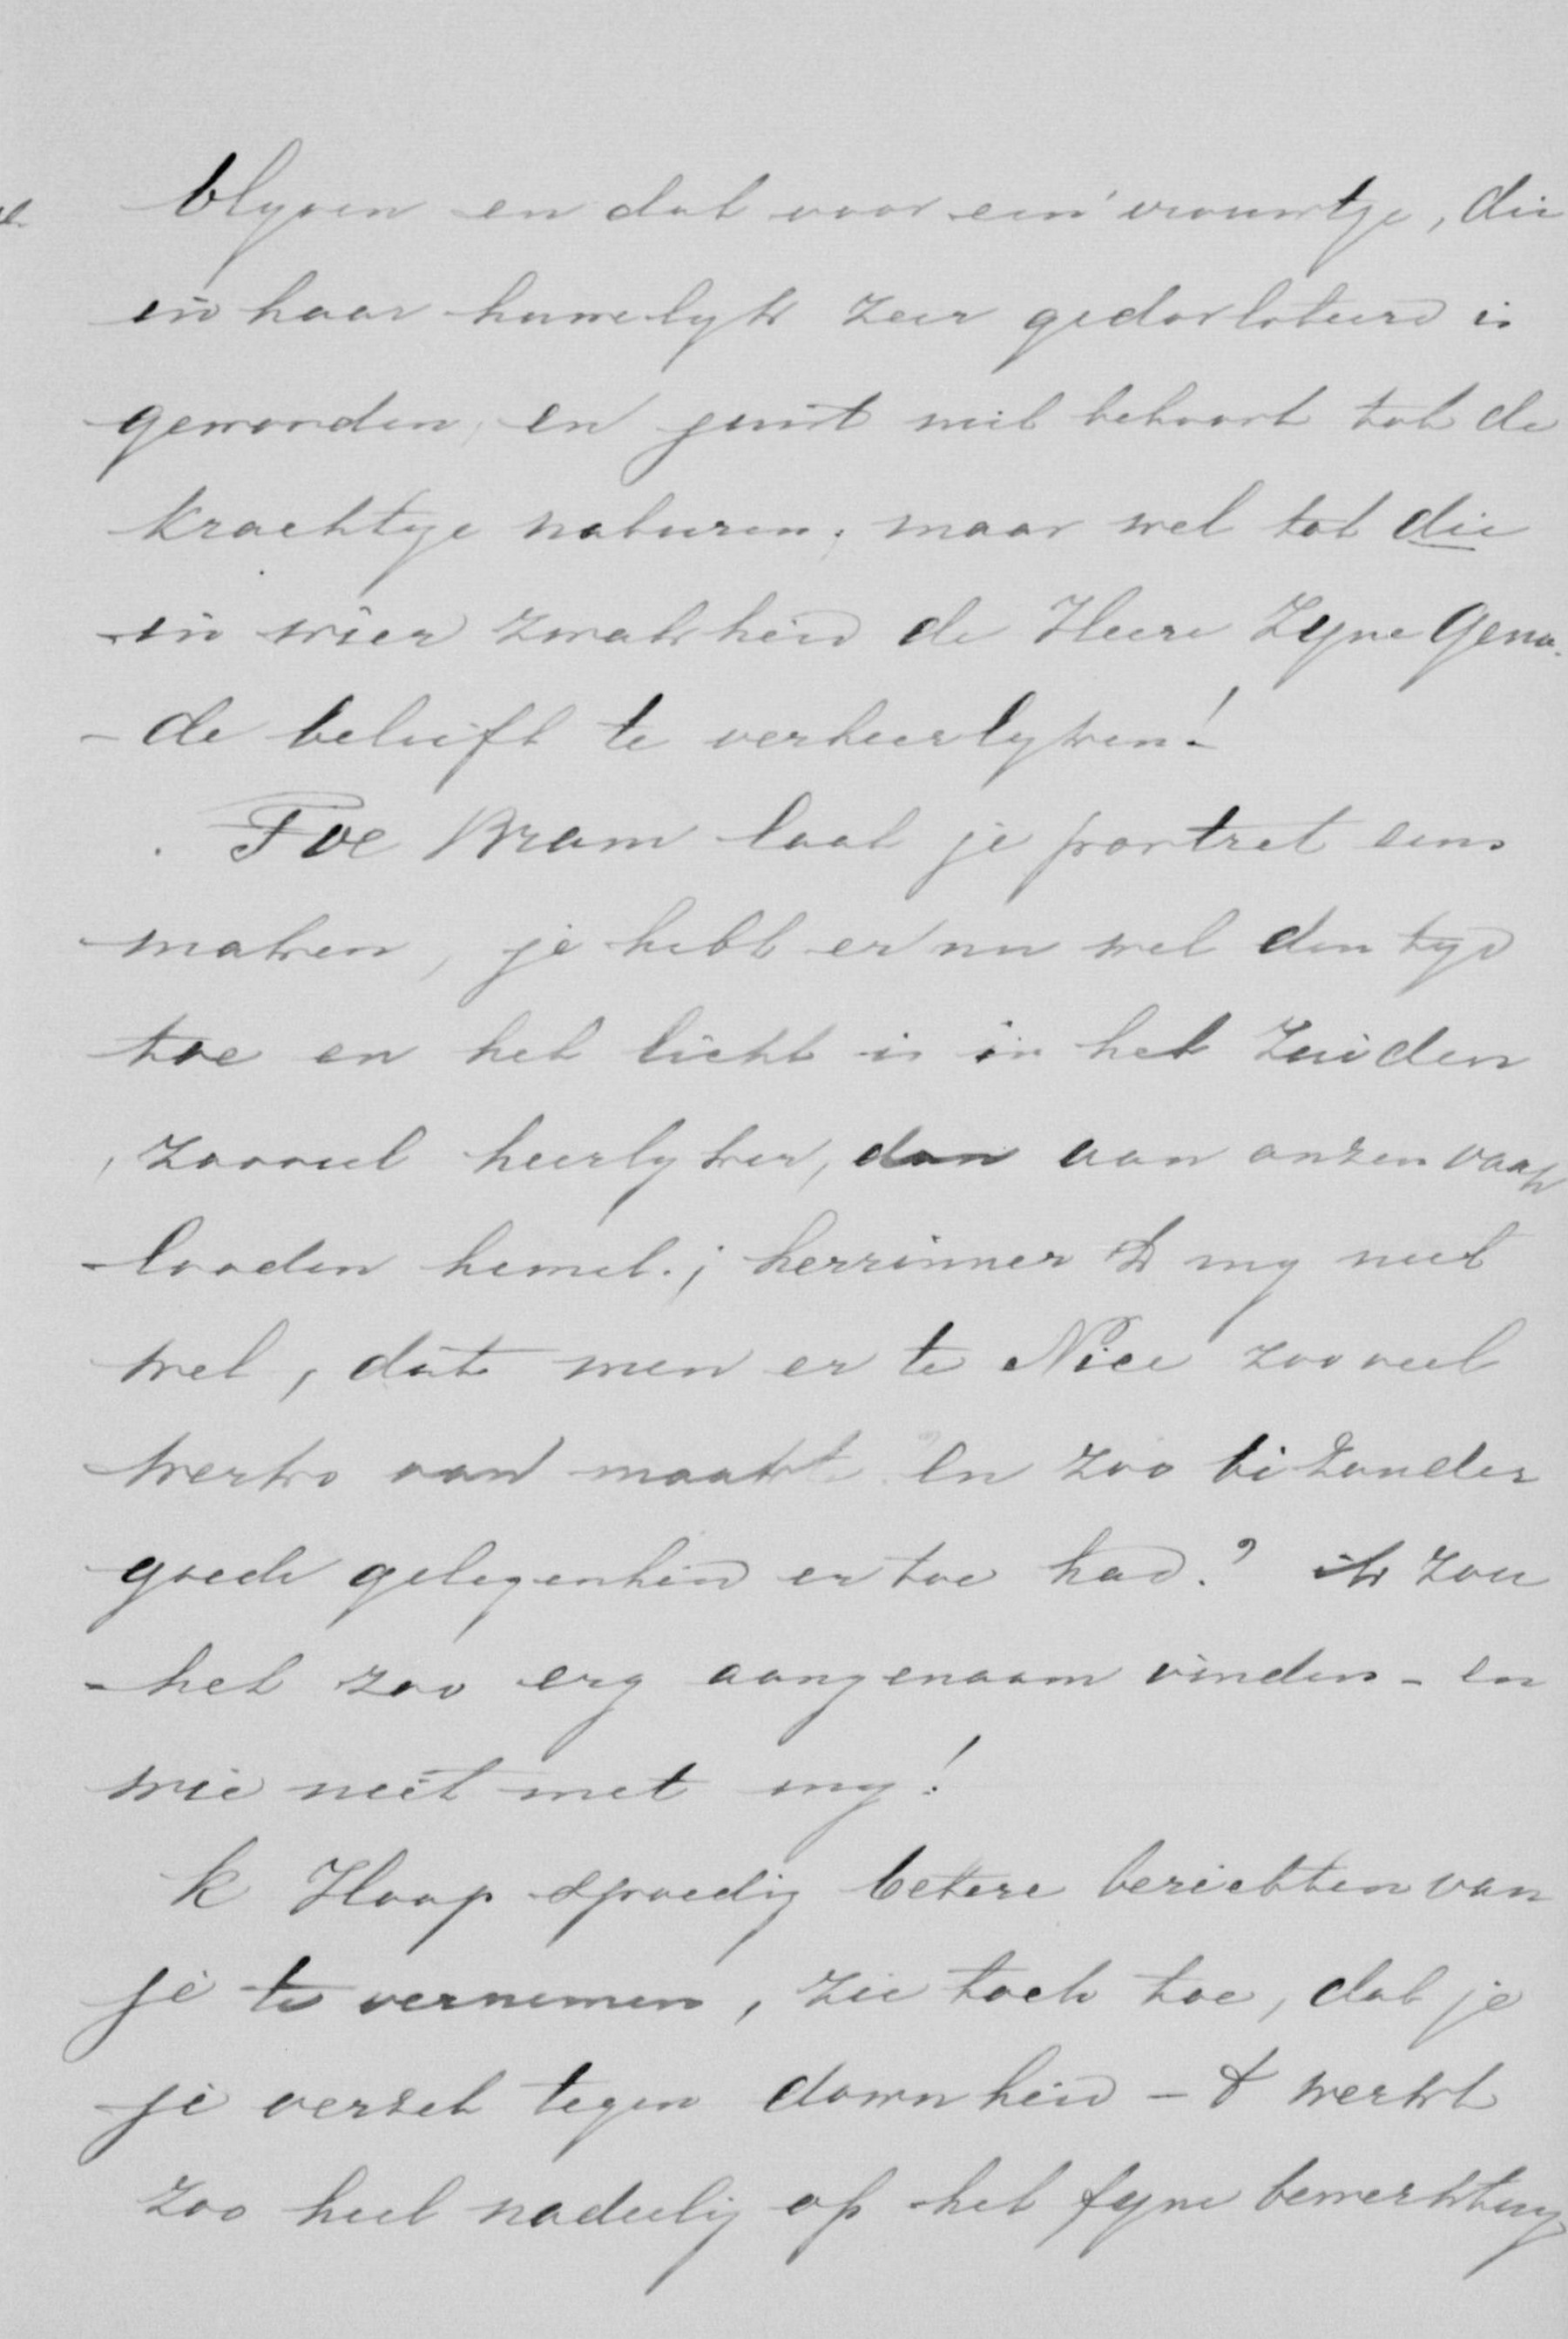 blyven en dat voor een vrouwtje, die
in haar huwelyk zeer gedorloteerd is
geworden, en juist niet behoort tot de
krachtige naturen, maar wel tot die
in wier zwakheid de Heere Zyne Gena-
-de belieft te verheerlyken!
Toe Bram laat je portret eens
maken, je hebt er nu wel den tyd
toe en het licht is in het Zuiden
zooveel heerlyker, dan aan onzen vaak
looden hemel; herrinner 'k my niet
wel, dat men er te Nice zooveel
werks van maakt en zoo bizonder
goede gelegenheid er toe had? ik zou
het zoo erg aangenaam vinden - en
wie niet met my!
k Hoop spoedig betere berichten van
je te vernemen, zie toch toe, dat je
je verzet tegen down heid - 't werkt
zoo heel nadeelig op het fyne bewerktuig